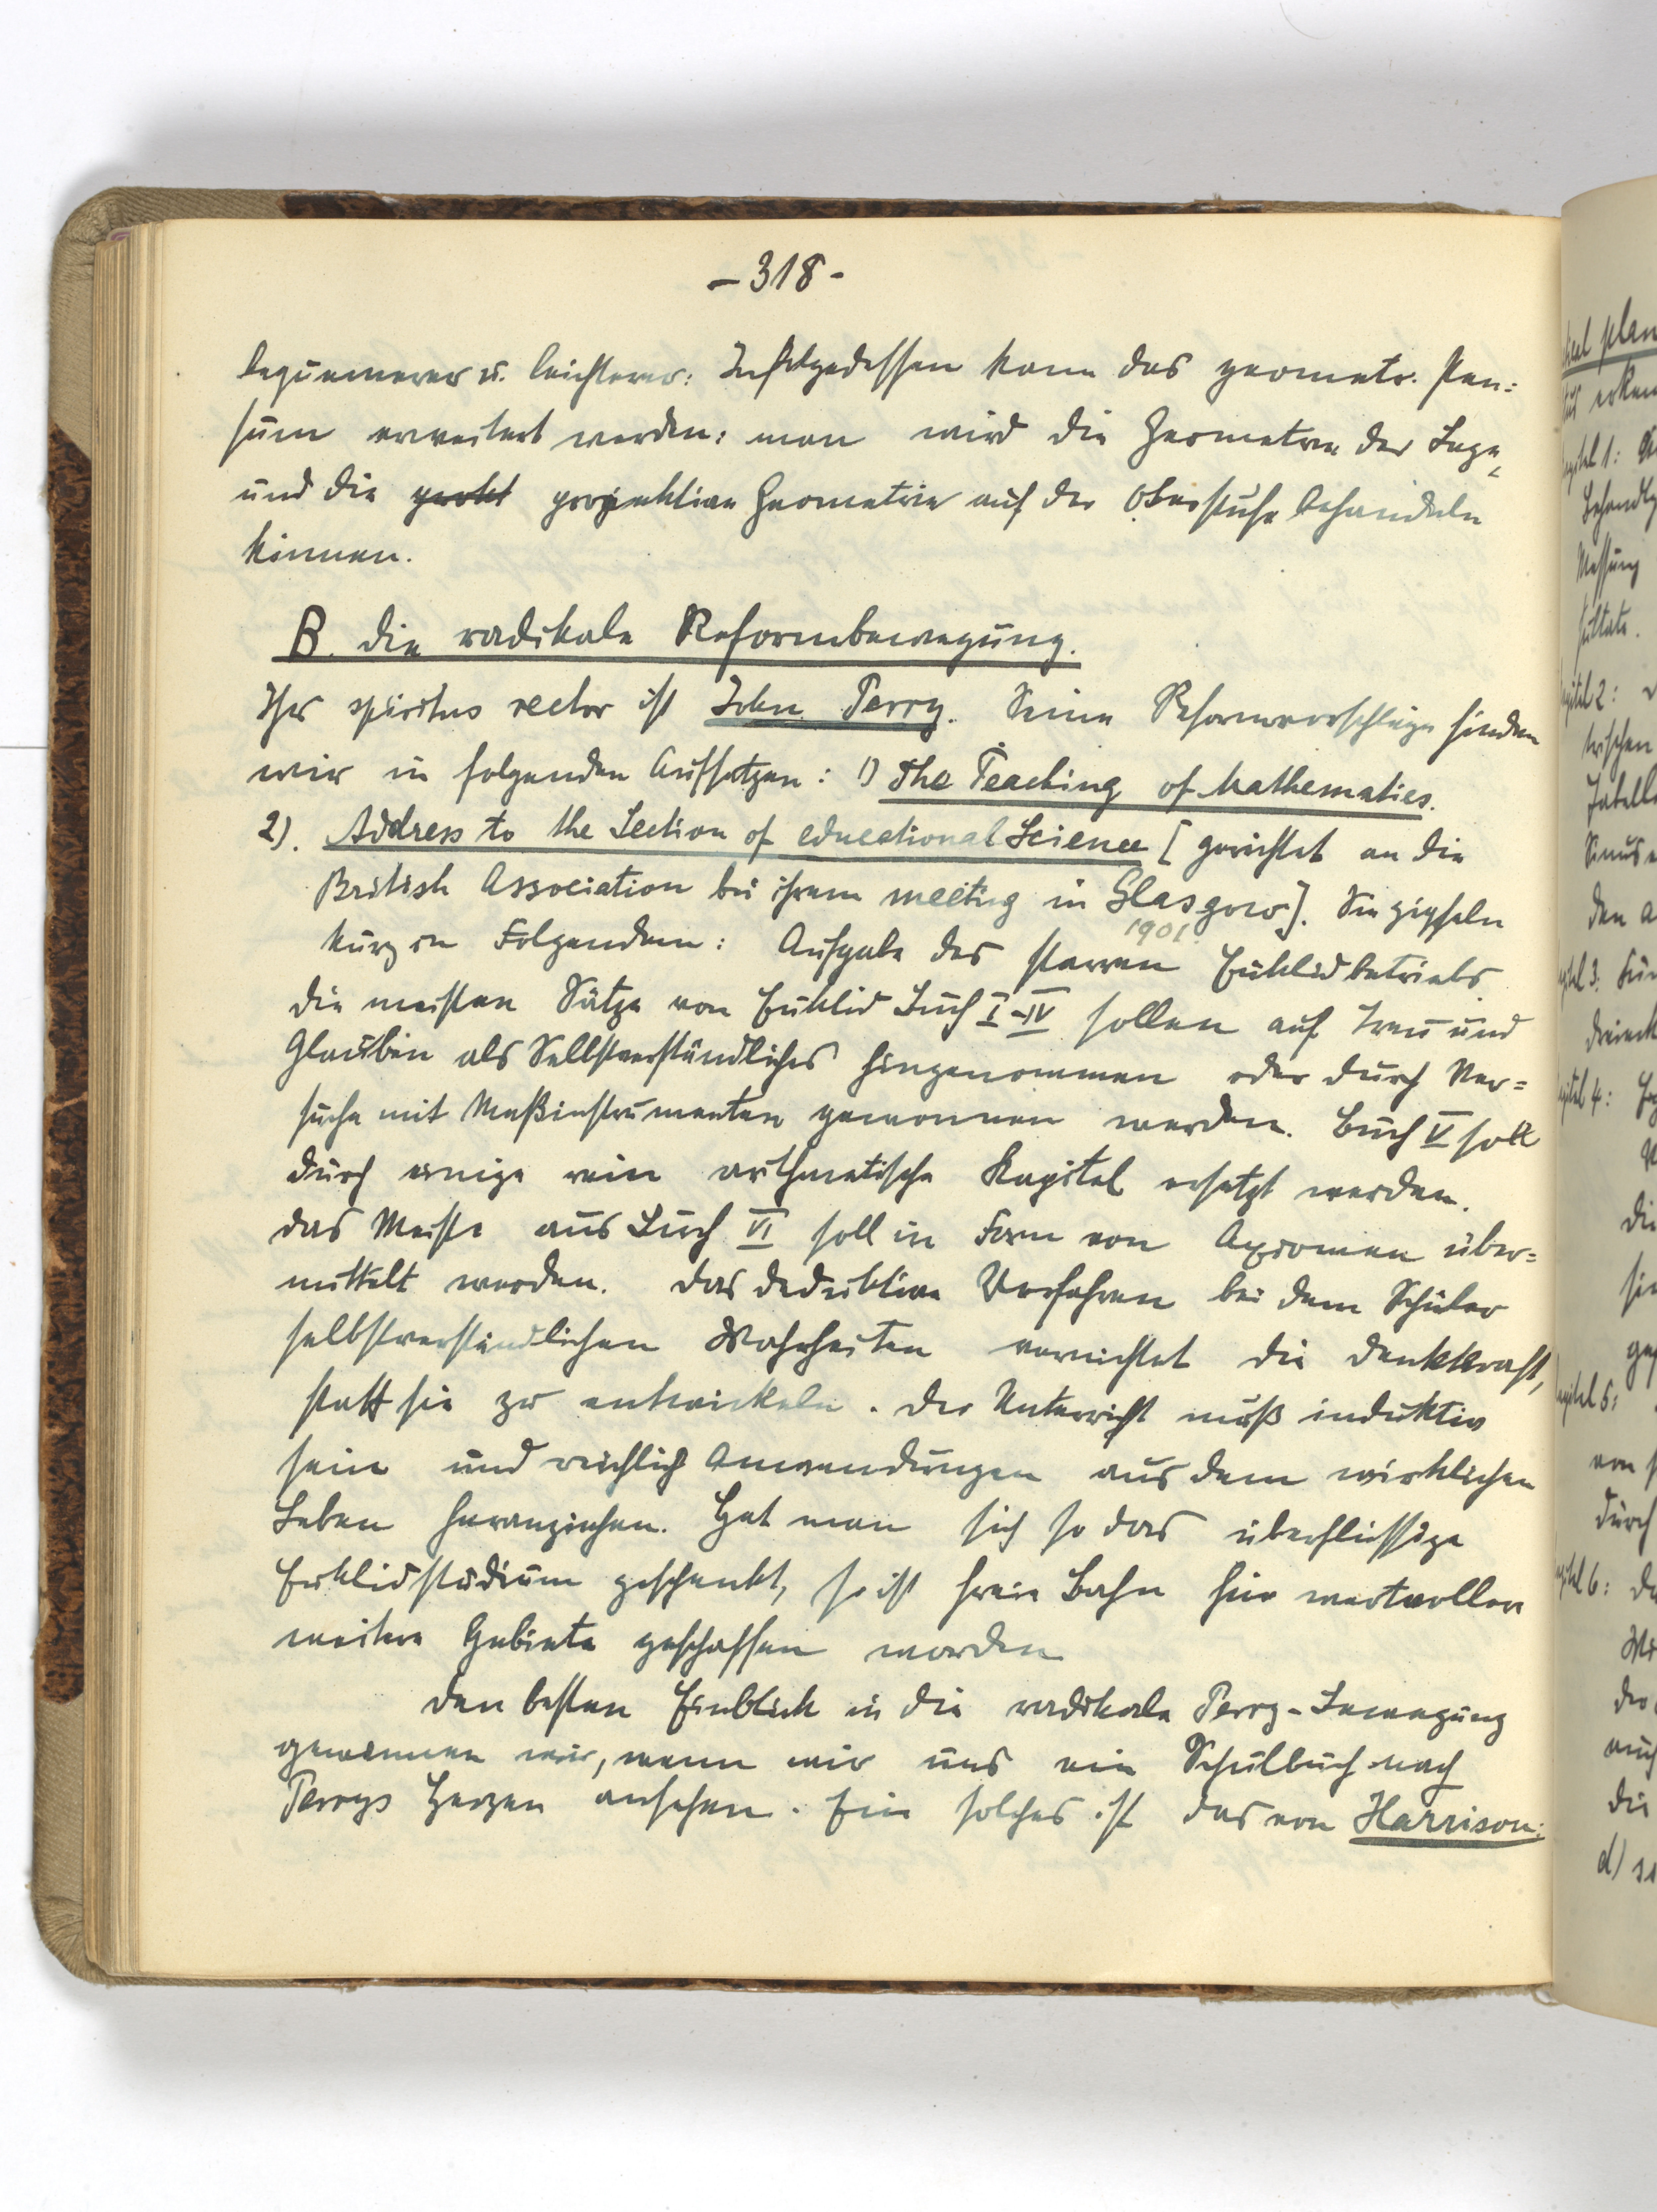 -318-
bequemerer u. leichterer: Infolgedessen kann das geometr. Pen=
sum erweitert werden: man wird die Geometrie der Lage,
und die projektive Geometrie auf der Oberstufe behandeln
können.
B. Die radikale Reformbewegung.
Ihr spiritus rector ist John Perry. Seine Reformvorschläge finden
wir in folgenden Aufsätzen: 1) The Teaching of Mathematics.
2). Address to the Section of educational Science [gerichtet an die
British Association bei ihrem meeting in Glasgow]. Sie gipfeln
1901.
kurz in Folgendem: Aufgabe des starren Euklidbetriebs.
Die meisten Sätze von Euklid Buch I-IV sollen auf Treu und
Glauben als Selbstverständliches hingenommen oder durch Ver=
suche mit Meßinstrumenten gewonnen werden. Buch V soll
durch einige rein arithmetische Kapitel ersetzt werden.
Das Meiste aus Buch VI soll in Form von Axiomen über=
mittelt werden. Das deduktive Verfahren bei dem Schüler
selbstverständlichen Wahrheiten vernichtet die Denkkraft,
statt sie zu entwickeln. Der Unterricht muß induktiv
sein und reichlich Anwendungen aus dem wirklichen
Leben heranziehen. Hat man sich so das überflüssige
Euklidstudium geschenkt, so ist freie Bahn für wertvollere
weitere Gebiete geschaffen worden
Den besten Einblick in die radikale Perry-Bewegung
gewinnen wir, wenn wir uns ein Schulbuch nach
Perrys Herzen ansehen. Ein solches ist das von Harrison: